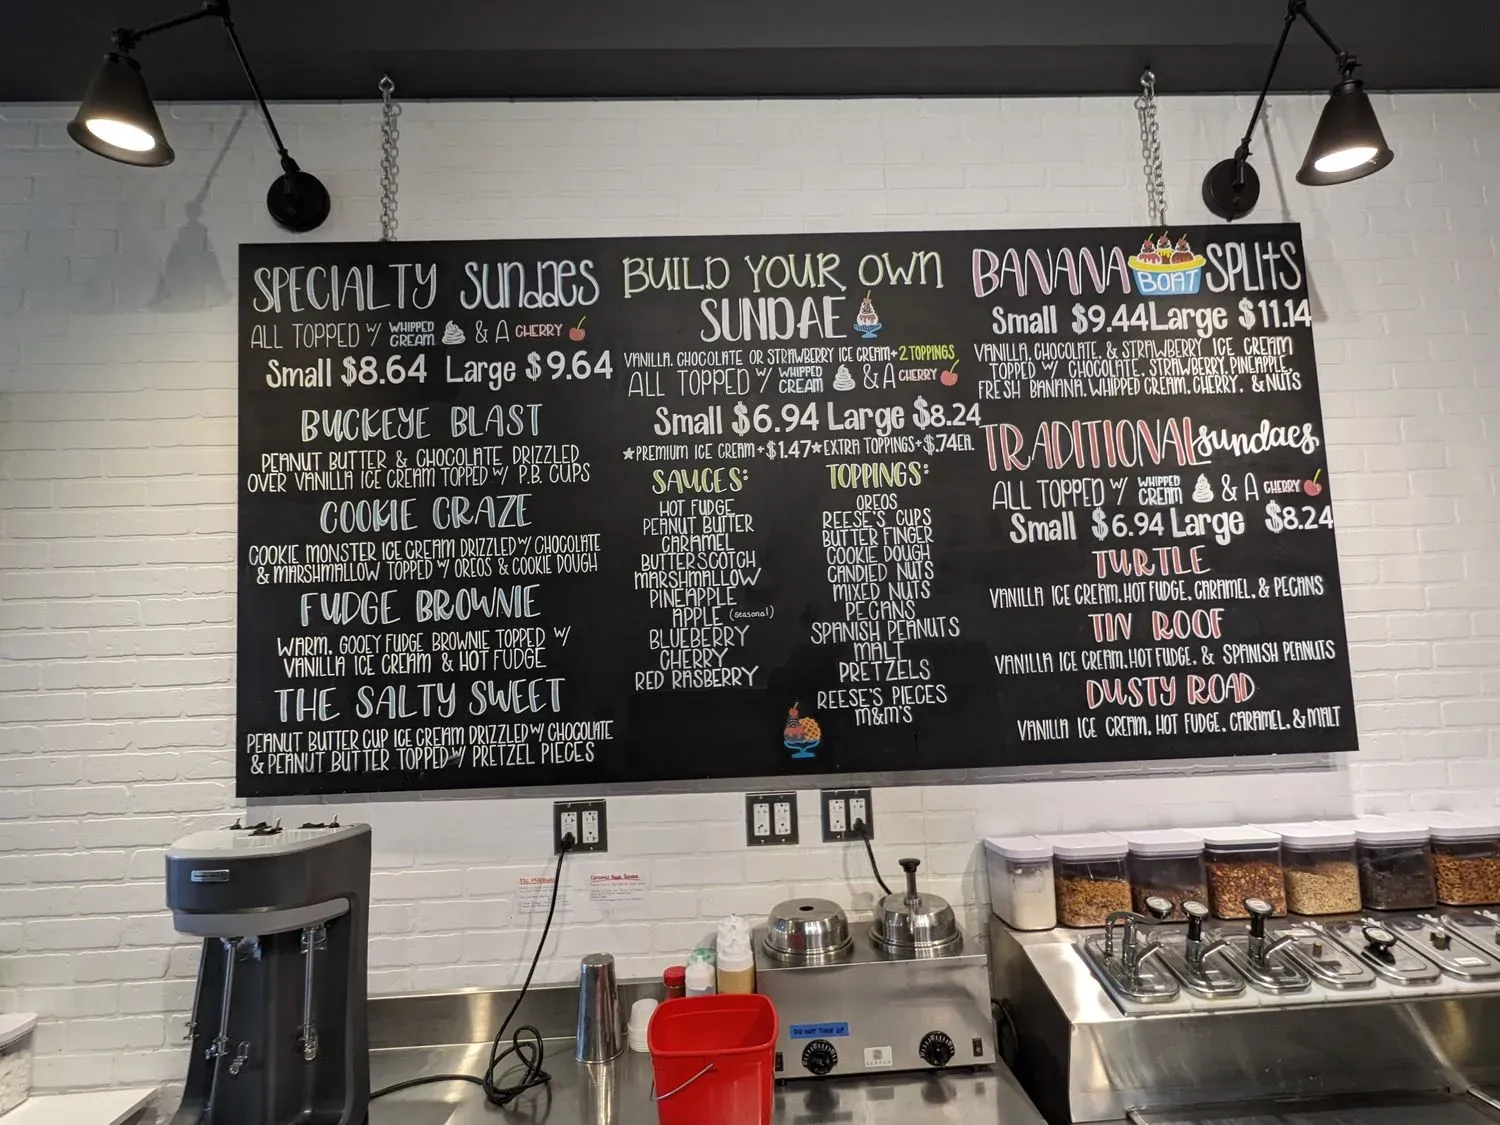 SPECIALTY SUNDAES
ALL TOPPED W/ WHIPPED CREAM & A CHERRY
Small $8.64 Large $9.64
BUCKEYE BLAST
PEANUT BUTTER & CHOCOLATE DRIZZLED
OVER VANILLA ICE CREAM TOPPED W/ P.B. CUPS
COOKIE CRAZE
COOKIE MONSTER ICE CREAM DRIZZLED W/ CHOCOLATE
& MARSHMALLOW TOPPED W/ OREOS & COOKIE DOUGH
FUDGE BROWNIE
WARM, GOOEY FUDGE BROWNIE TOPPED W/
VANILLA ICE CREAM & HOT FUDGE
THE SALTY SWEET
PEANUT BUTTER CUP ICE CREAM DRIZZLED W/ CHOCOLATE
& PEANUT BUTTER TOPPED W/ PRETZEL PIECES
BUILD YOUR OWN
SUNDAE
VANILLA, CHOCOLATE OR STRAWBERRY ICE CREAM + 2 TOPPINGS
ALL TOPPED W/ WHIPPED CREAM & A CHERRY
Small $6.94 Large $8.24
★PREMIUM ICE CREAM +$1.47★EXTRA TOPPINGS +$.74EA.
SAUCES:
HOT FUDGE
PEANUT BUTTER
CARAMEL
BUTTERSCOTCH
MARSHMALLOW
PINEAPPLE
APPLE (seasonal)
BLUEBERRY
CHERRY
RED RASBERRY
TOPPINGS:
OREOS
REESE'S CUPS
BUTTER FINGER
COOKIE DOUGH
CANDIED NUTS
MIXED NUTS
PECANS
SPANISH PEANUTS
MALT
PRETZELS
REESE'S PIECES
M&M'S
BANANA BOAT SPLITS
Small $9.44 Large $11.14
VANILLA, CHOCOLATE, & STRAWBERRY ICE CREAM
TOPPED W/ CHOCOLATE, STRAWBERRY, PINEAPPLE,
FRESH BANANA, WHIPPED CREAM, CHERRY, & NUTS
TRADITIONAL sundaes
ALL TOPPED W/ WHIPPED CREAM & A CHERRY
Small $6.94 Large $8.24
TURTLE
VANILLA ICE CREAM, HOT FUDGE, CARAMEL, & PECANS
TIN ROOF
VANILLA ICE CREAM, HOT FUDGE, & SPANISH PEANUTS
DUSTY ROAD
VANILLA ICE CREAM, HOT FUDGE, CARAMEL, & MALT
DO NOT TURN UP